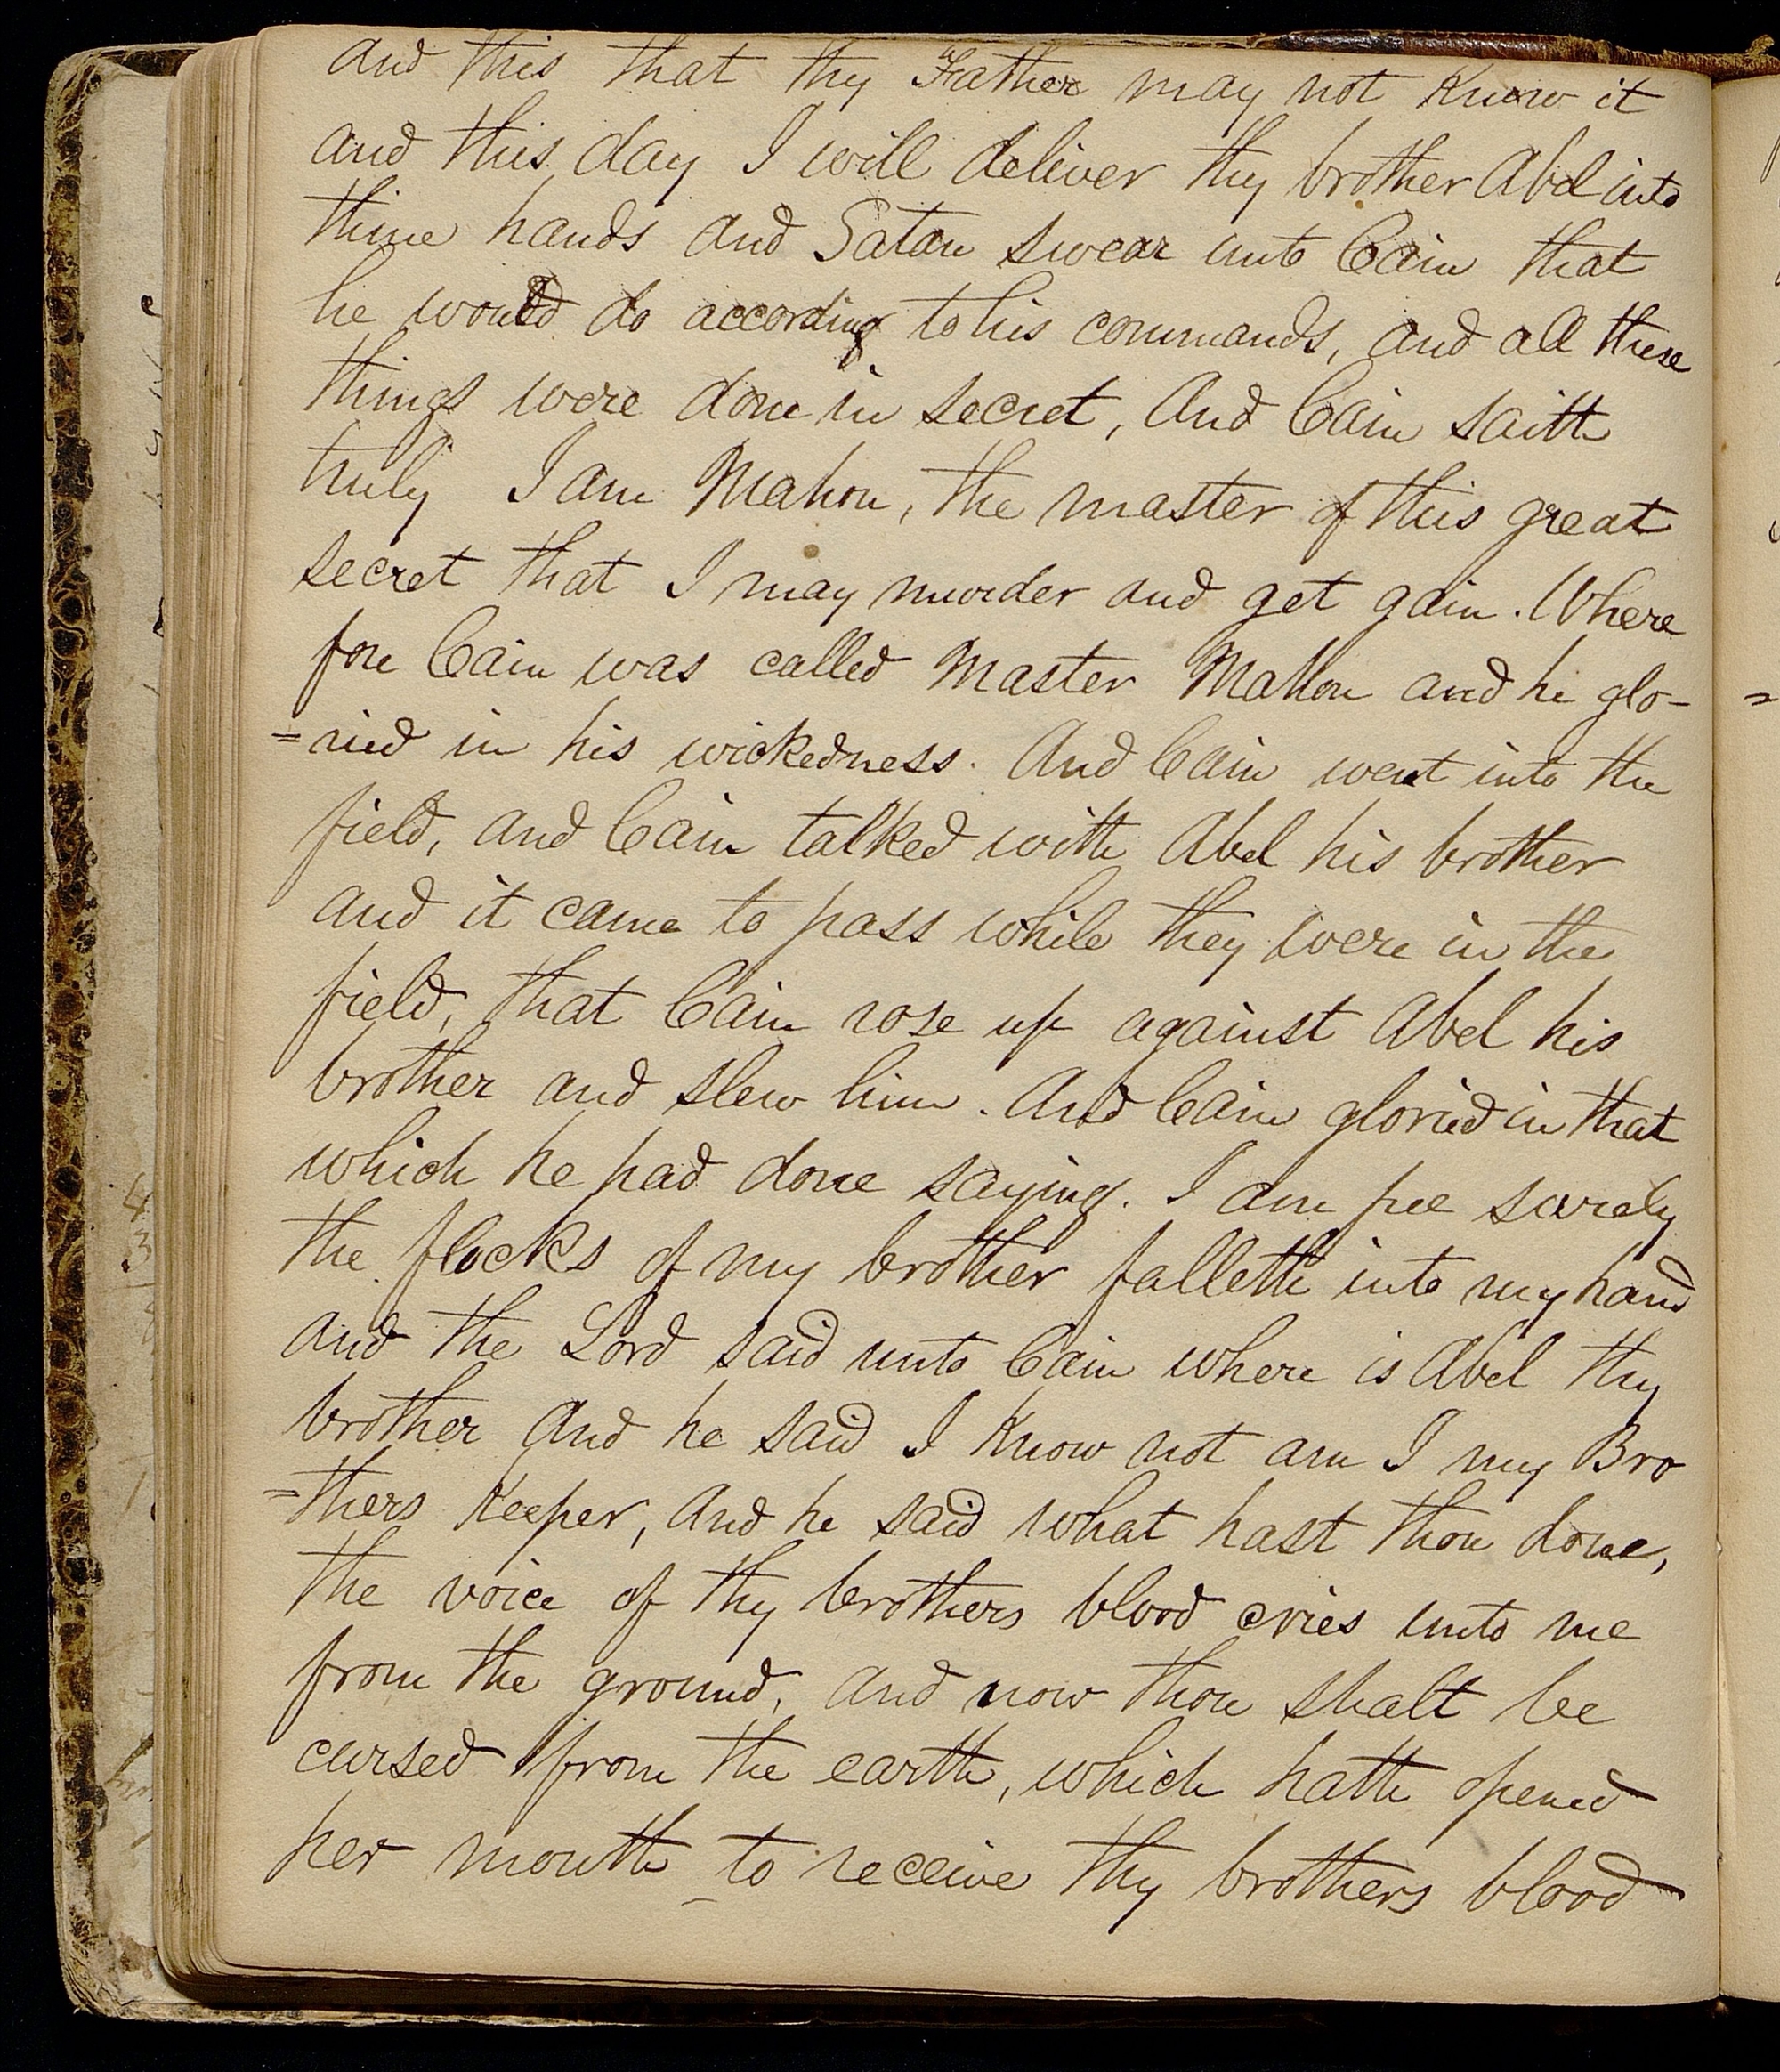 and this that thy Father may not Know it
and this day I will deliver thy brother Abel into
thine hands and Satan swear unto Cain that
he would do according to his commands, and all these
things were done in secret, And Cain saith
truly I am Mahon, the master of this great
secret that I may murder and get gain. Where
fore Cain was called Master Mahon and he glo-
=ried in his wickedness. And Cain went into the
field, and Cain talked with Abel his brother
and it came to pass while they were in the
field, that Cain rose up against Abel his
brother and slew him. And Cain gloried in that
which he had done saying. I am free surely
the flocks of my brother falleth into my hand
and the Lord said unto Cain where is Abel thy
brother And he said I Know not am I my Bro
=thers Keeper, And he said what hast thou done,
the voice of thy brothers blood cries unto me
from the ground, and now thou shalt be
cursed from the earth, which hath opened
her mouth to receive thy brothers blood